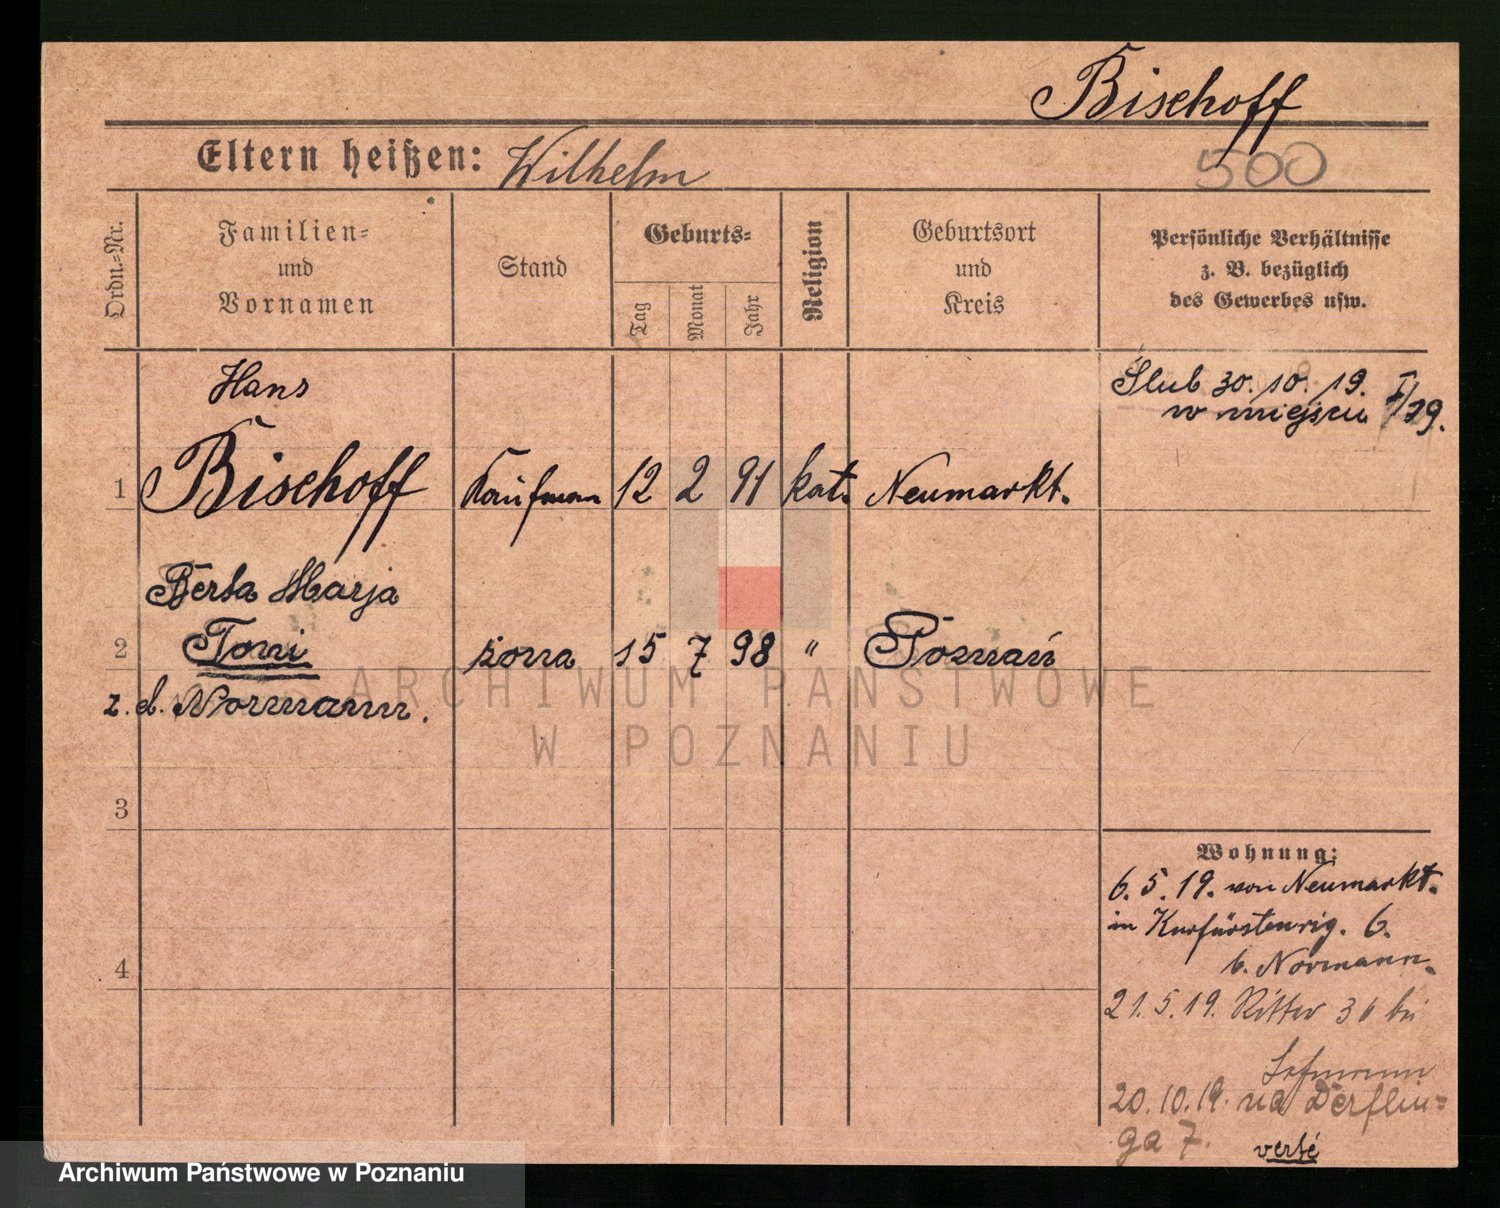 Bischoff
Eltern heißen: Wilhelm
500
Ordn.-Nr.
Familien-
und
Vornamen
Stand
Geburts-
Tag
Monat
Jahr
Religion
Geburtsort
und
Kreis
Persönliche Verhältnisse
z. B. bezüglich
des Gewerbes usw.
Hans
Ślub 30. 10. 19. I/19.
w miejscu
1 Bischoff Kaufmann 12 2 91 kat. Neumarkt.
Berta Marja
2 Toni żona 15 7 98 " Poznań
z. d. Normann.
3
4
Wohnung:
6. 5. 19. von Neumarkt.
in Kurfürstenrig. 6.
b. Normann.
21. 5. 19. Ritter 36 bei
20. 10. 19. na Derflin-
ga 7.
verté
ARCHIWUM PAŃSTWOWE
W POZNANIU
Archiwum Państwowe w Poznaniu